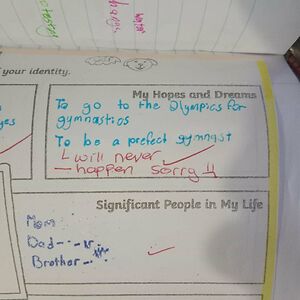 f your identity.
My Hopes and Dreams
To go to the Olympics for
gymnastics
To be a prefect gymnast
will never
happen sorry
Significant People in My Life
Mom
Dad
Brother